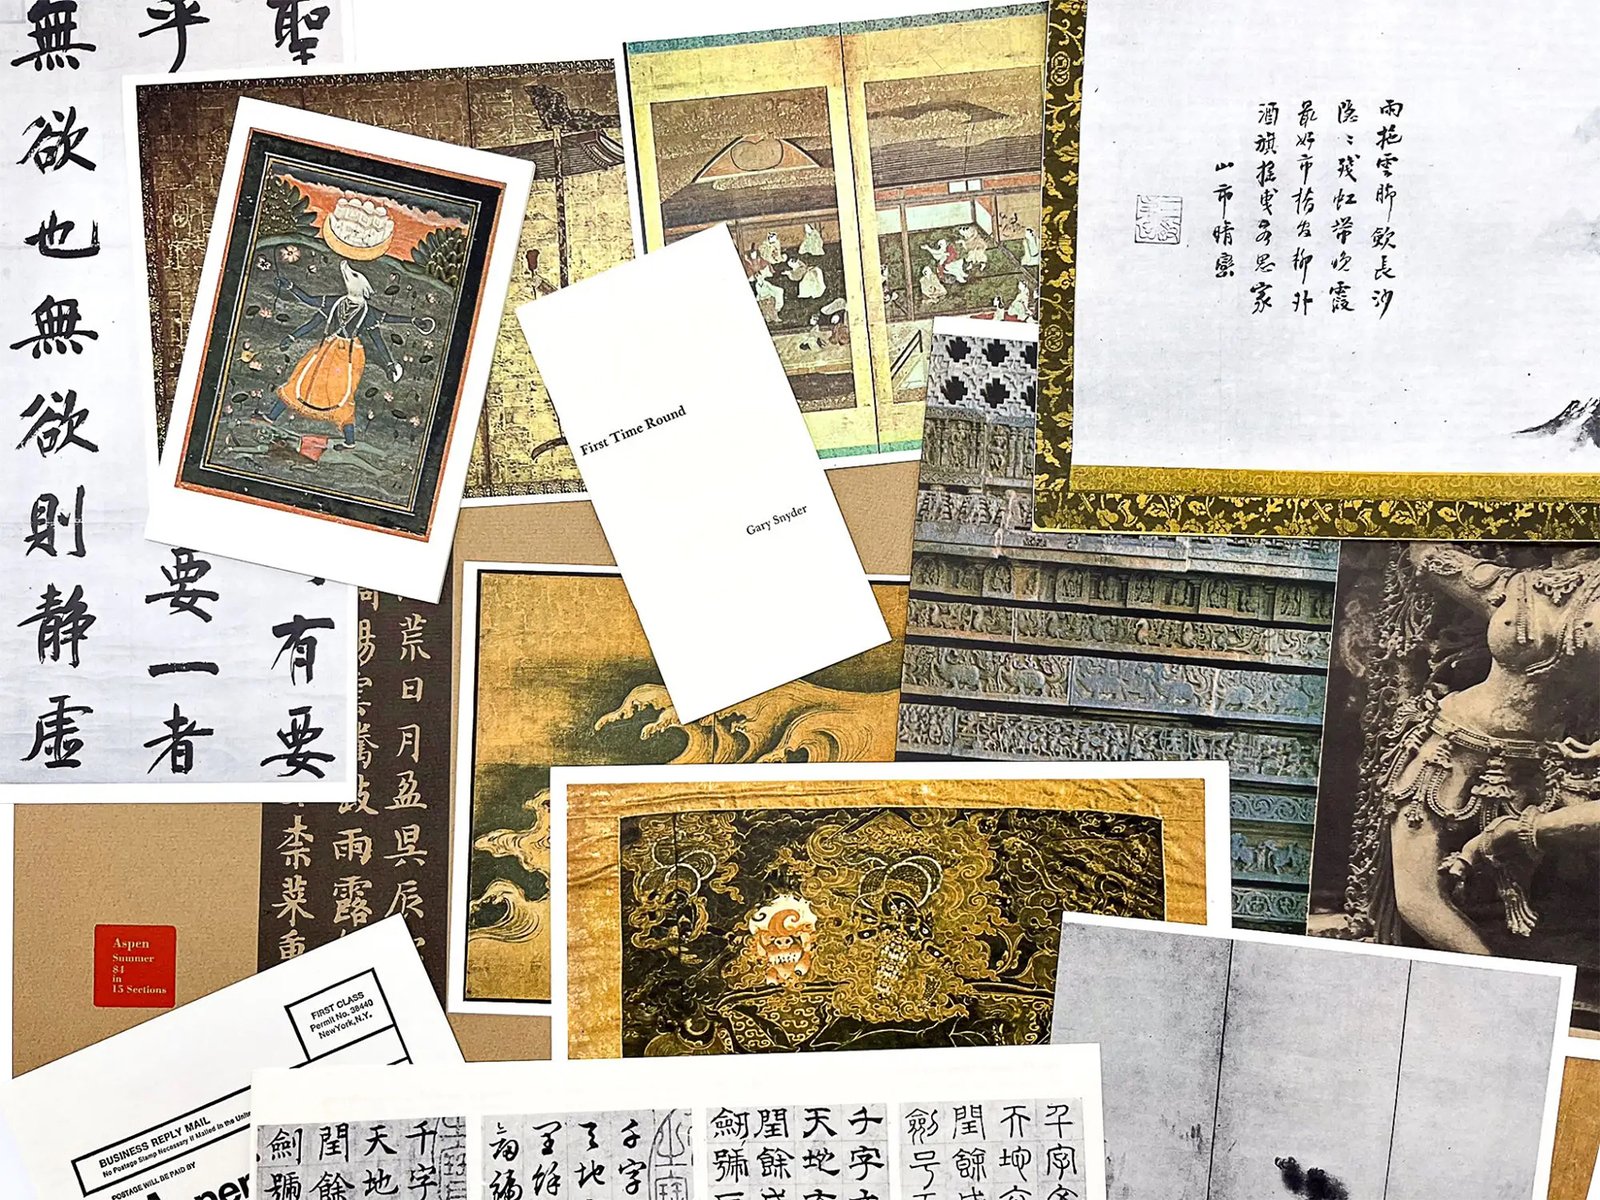 聖
有要
乎
要一者
無欲也無欲則静虚
雨拖雲脚歛長沙
隱々殘虹帶晚霞
最好市橋官柳外
酒旗搖曳客思家
山市晴巒
First Time Round
Gary Snyder
荒日月盈昃辰
陽雲騰致雨露
柰菜重
Aspen
Summer
84
in
15 Sections
FIRST CLASS
Permit No. 38440
New York, N.Y.
BUSINESS REPLY MAIL
No Postage Stamp Necessary if Mailed in the Unite
POSTAGE WILL BE PAID BY
千字
天地
閏餘
劍號
千字
天地
閏餘
千字
天地
閏餘成
劍號
千字
天地
閏餘
劍号